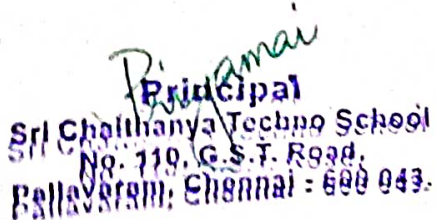 Priyamai
Principal
Sri Chaithanya Techno School
No. 110, G.S.T. Road,
Pallavaram, Chennai - 600 043.